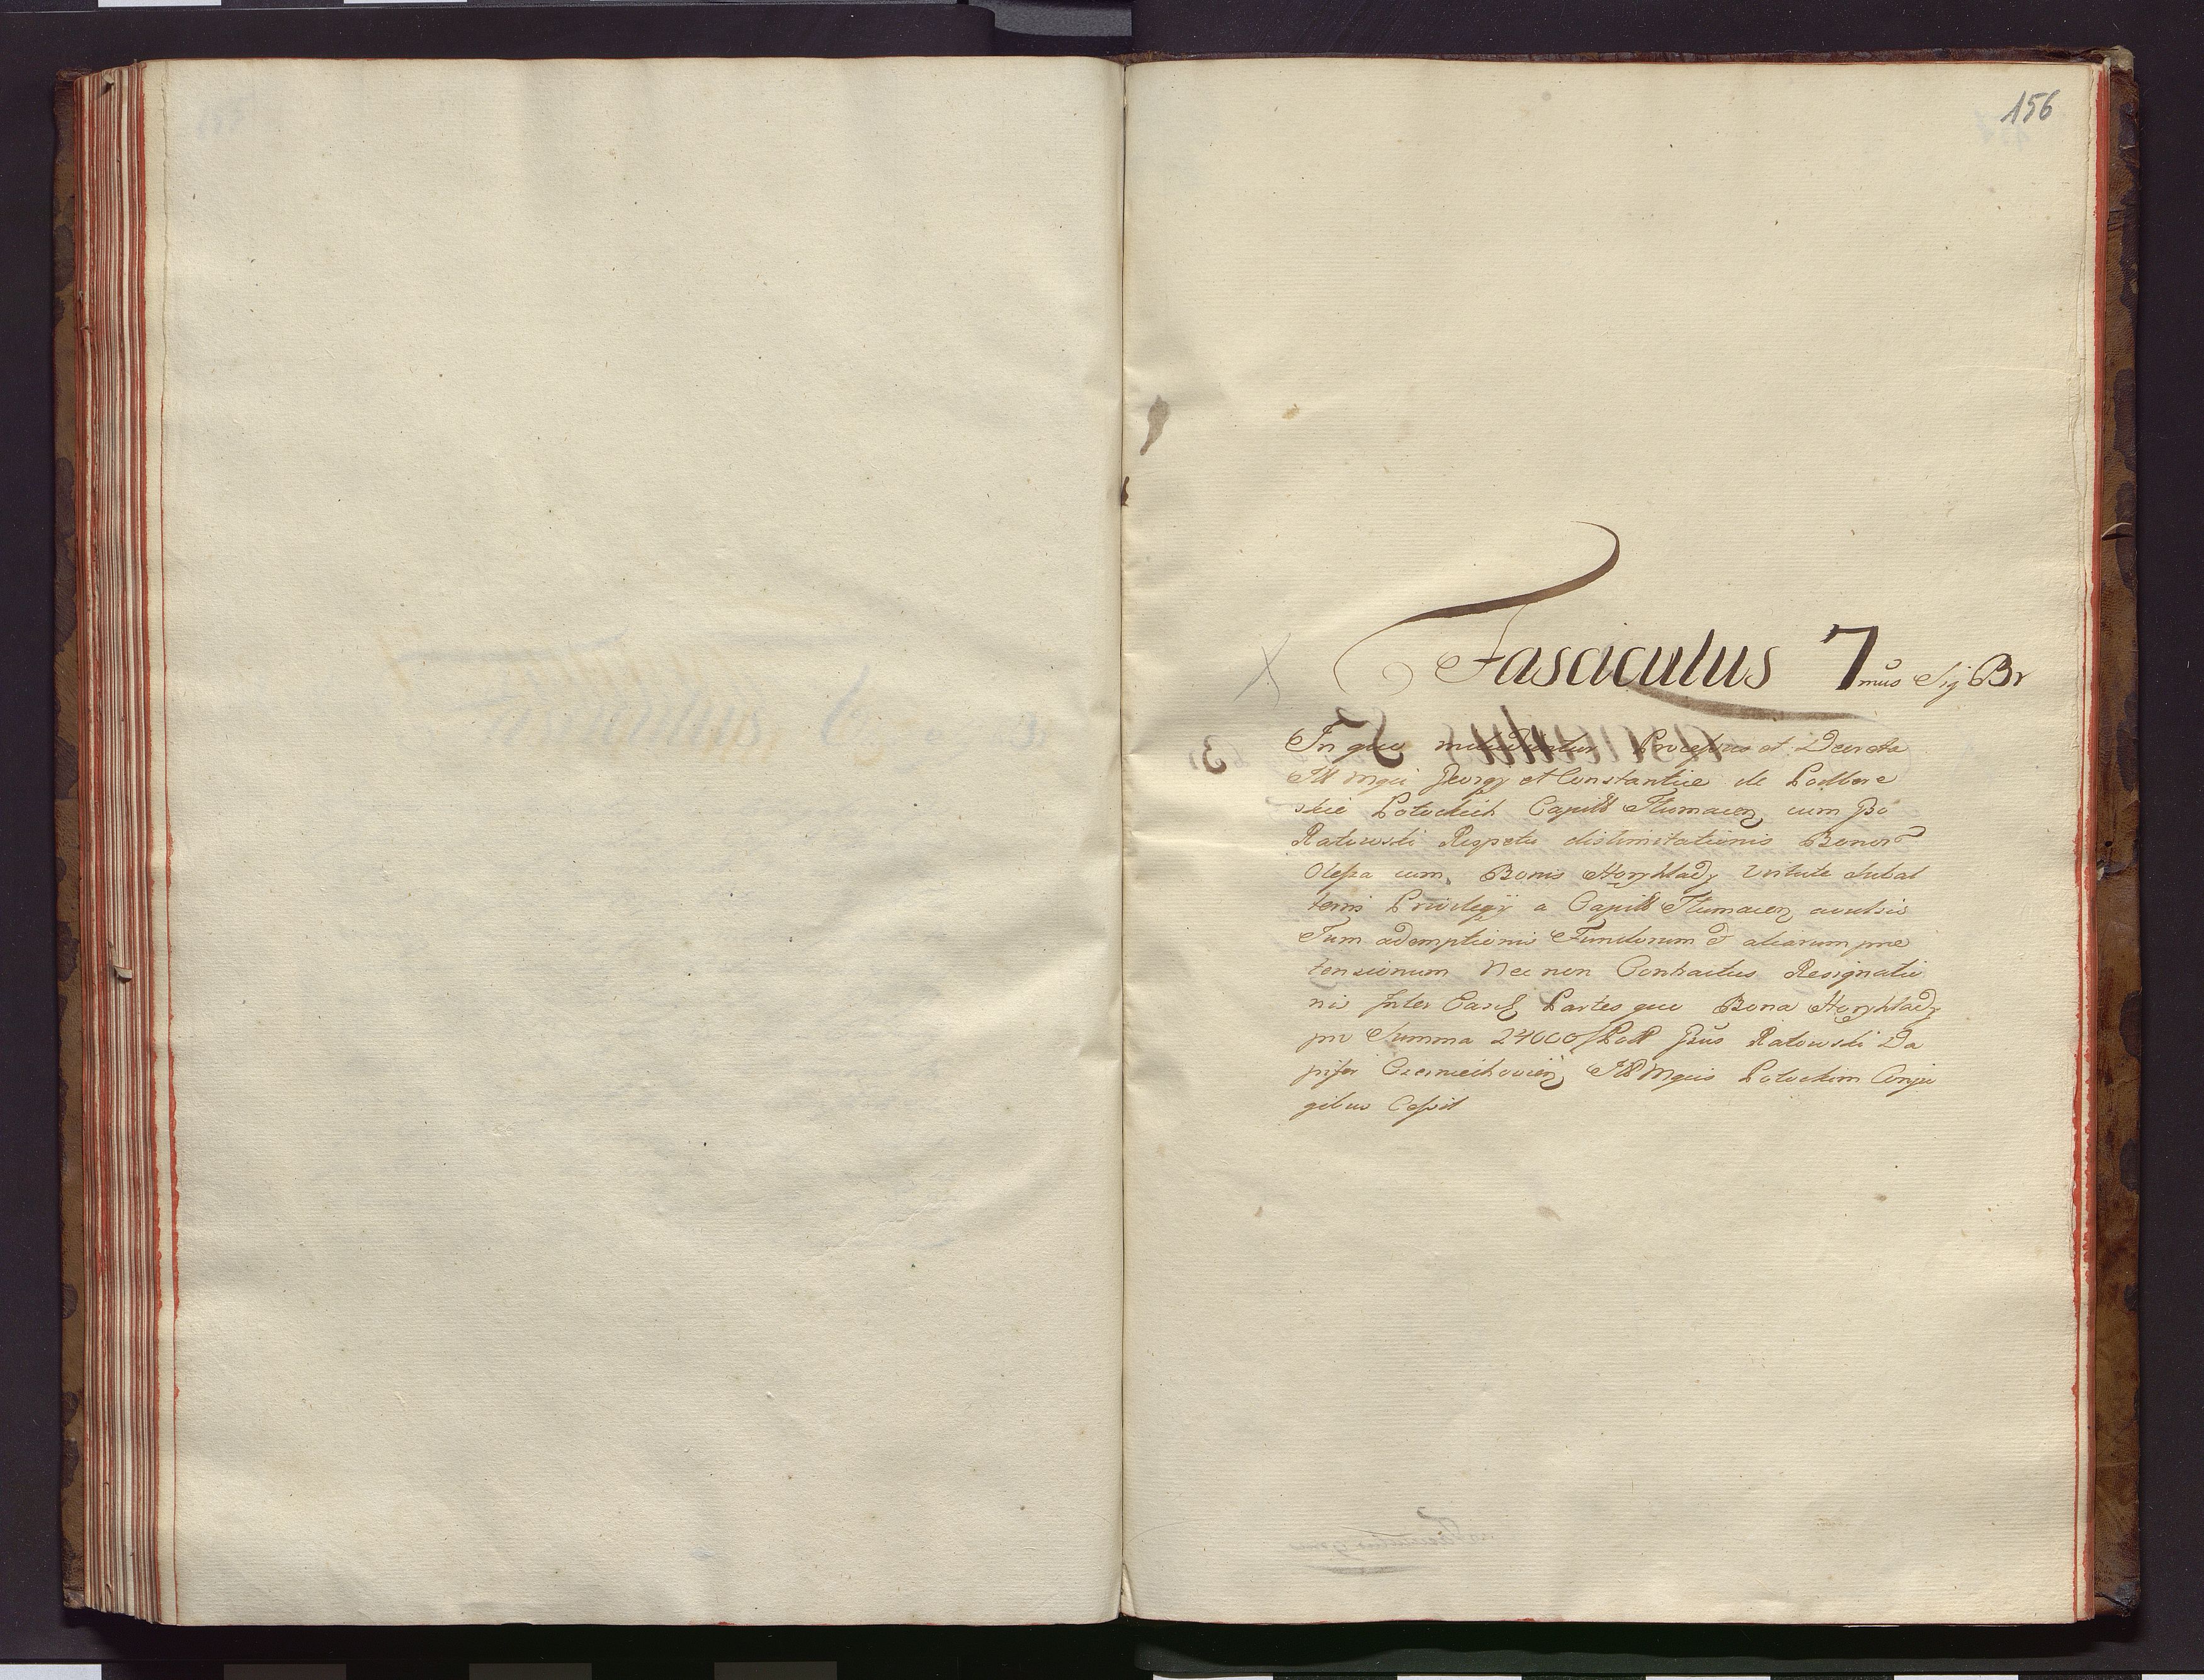 156
Fasciculus 7mus Sig Br
In quo includuntur Processus et Decreta
Ill Mgci Georgy et Constantiæ de Podbere
skie Potockich Capitt Tlumacen cum Go
Ratowski Respectu dislimitationis Bonorū
Olesza cum Bonis Horyhlady Virtute subal
terni Privilegÿ a Capitt Tlumacen avulsis
Tum ademptionis Fundorum & aliarum præ
tensionum Nec non Contractus Resignatio
nis Inter Easd Partes quo Bona Horyhlady
pro Summa 24000 f Poll Gsus Ratowski Da
pifer Czerniechovien Ill Mgcis Potockim Conju
gibus Cessit